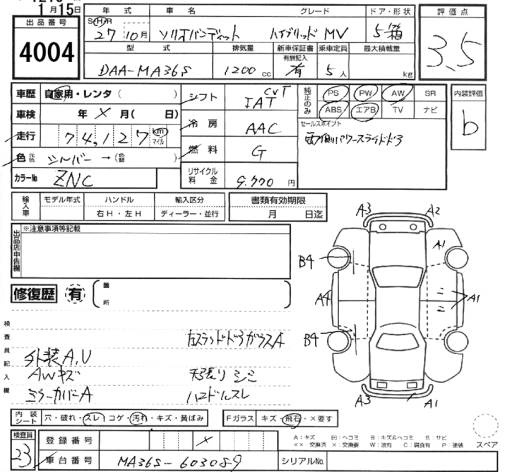 12月15日
出品番号
4004
年式 車名 グレード ドア・形状 評価点
S・H・R 27年10月 ソリオバンディット ハイブリッド MV 5/箱 3.5
型式 排気量 新車保証書 乗車定員 最大積載量
有・記入
DAA-MA36S 1200cc 有 5人 kg
車歴 自家用・レンタ( )
車検 年 × 月( 日)
走行 74,127 km マイル
色 シルバー →( )
カラーNo ZNC
シフト CVT IAT
冷房 AAC
燃料 G
リサイクル料金 9,770円
純正のみ PS PW AW SR
ABS エアB TV ナビ
セールスポイント
パワースライドドア
内装評価
b
輸入車 モデル年式 ハンドル 輸入区分
右H・左H ディーラー・並行
書類有効期限
月 日迄
出品店申告欄 ※注意事項等記載
修復歴 有 箇所
検査員記入欄
A3 A2
B4 A1
A4 A1
B4
A3 A1
左スライドドアガラスA
外装A,U
AWキズ 天張りシミ
ミラーカバーA ハンドルスレ
内装シート 穴・破れ・スレ・コゲ・汚れ・キズ・黄ばみ
Fガラス キズ・飛石・×要す
検査員 23
登録番号 ×
車台番号 MA36S-603089
シリアルNo.
A:キズ B:ヘコミ C:サビ
××:交換済 ×:交換要 W:波有 C:腐食有 P:塗装
スペア